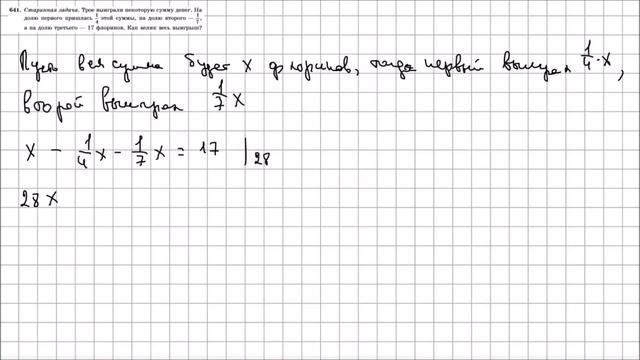 641. Старинная задача. Трое выиграли некоторую сумму денег. На
долю первого пришлась 1/4 этой суммы, на долю второго — 1/7,
а на долю третьего — 17 флоринов. Как велик весь выигрыш?
Пусть вся сумма будет х флоринов, тогда первый выиграл 1/4·х,
второй выиграл 1/7 х
х - 1/4 х - 1/7 х = 17 | 28
28 х